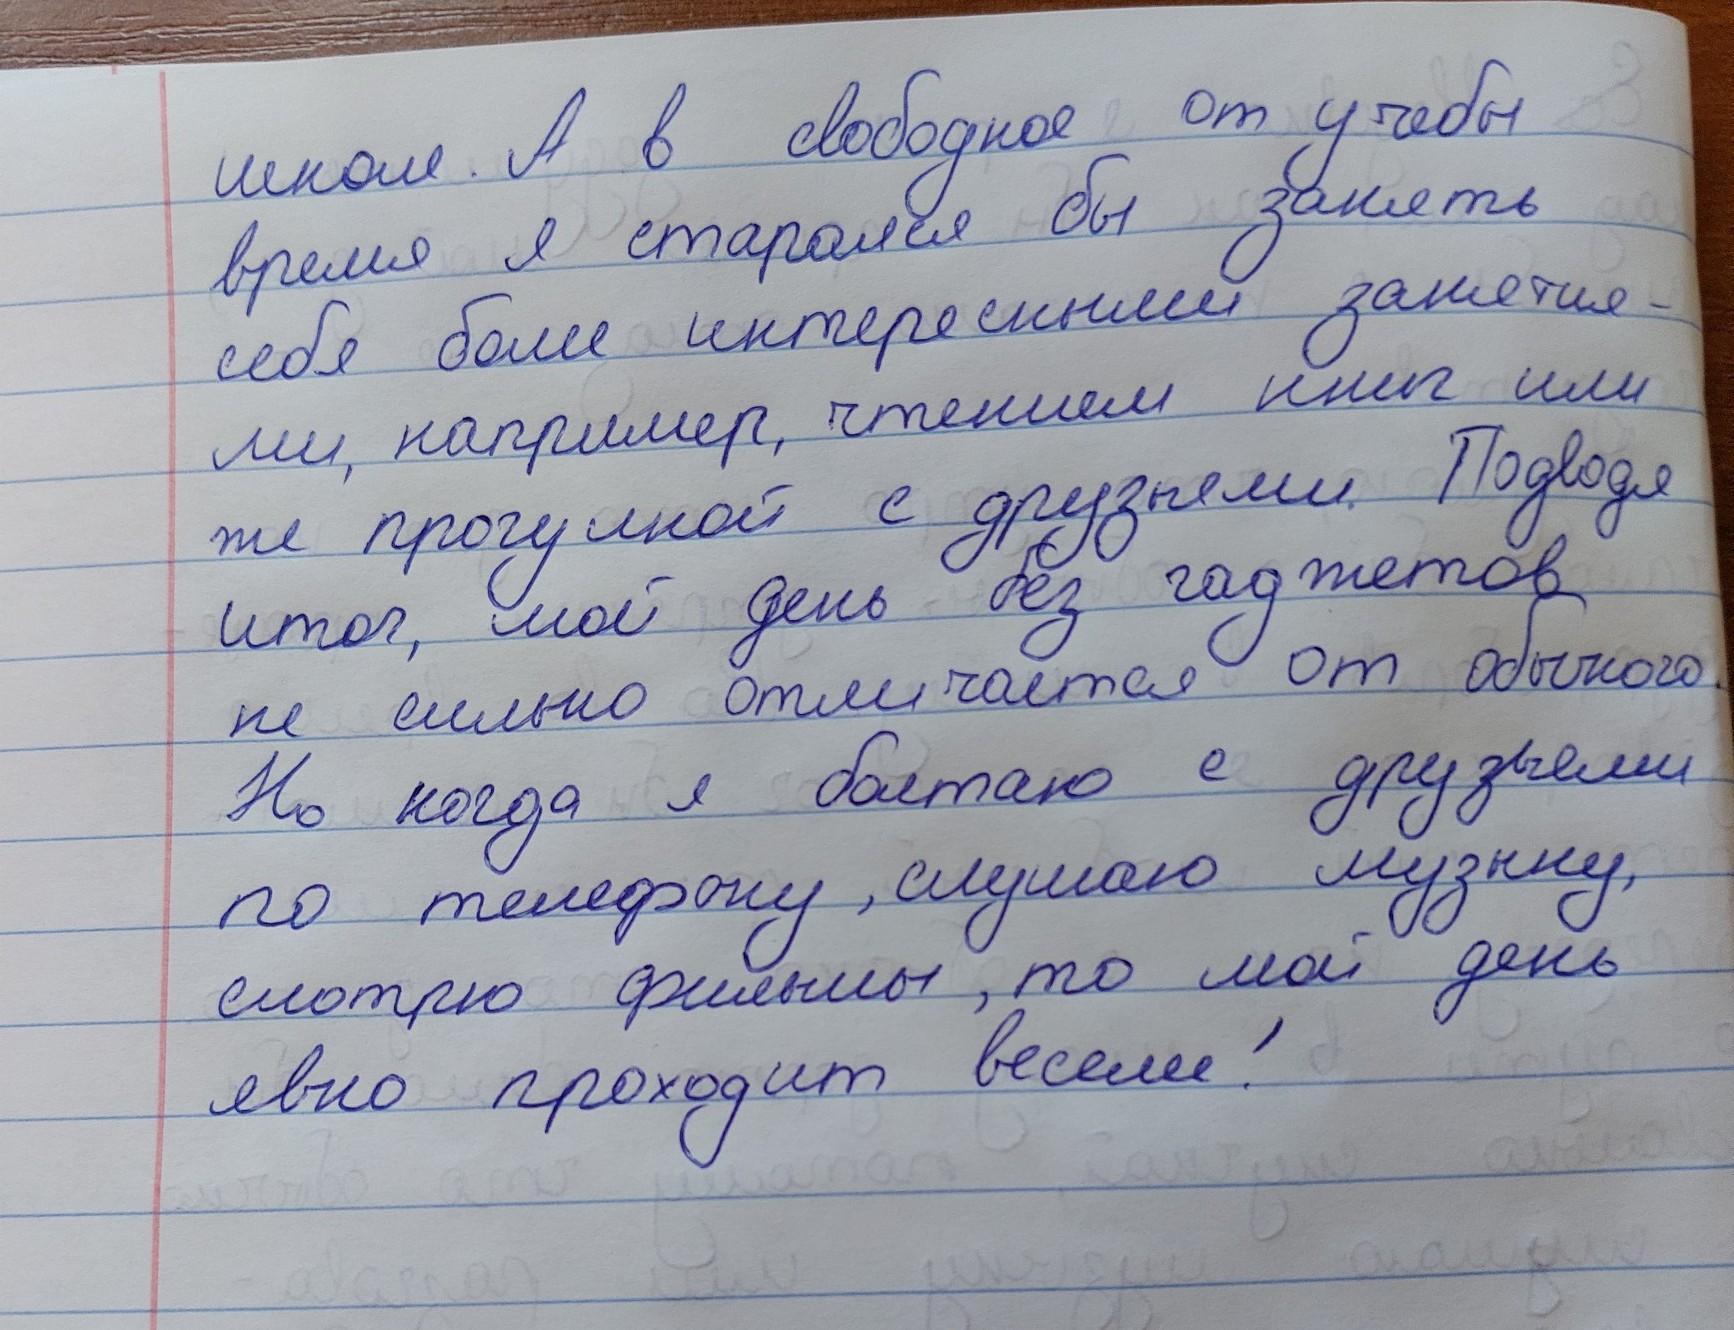 школе. А в свободное от учебы
время я старался бы занять
себя более интересными занятия-
ми, например, чтением книг или
же прогулкой с друзьями. Подводя
итог, мой день без гаджетов
не сильно отличается от обычного.
Но когда я болтаю с друзьями
по телефону, слушаю музыку,
смотрю фильмы, то мой день
явно проходит веселее!